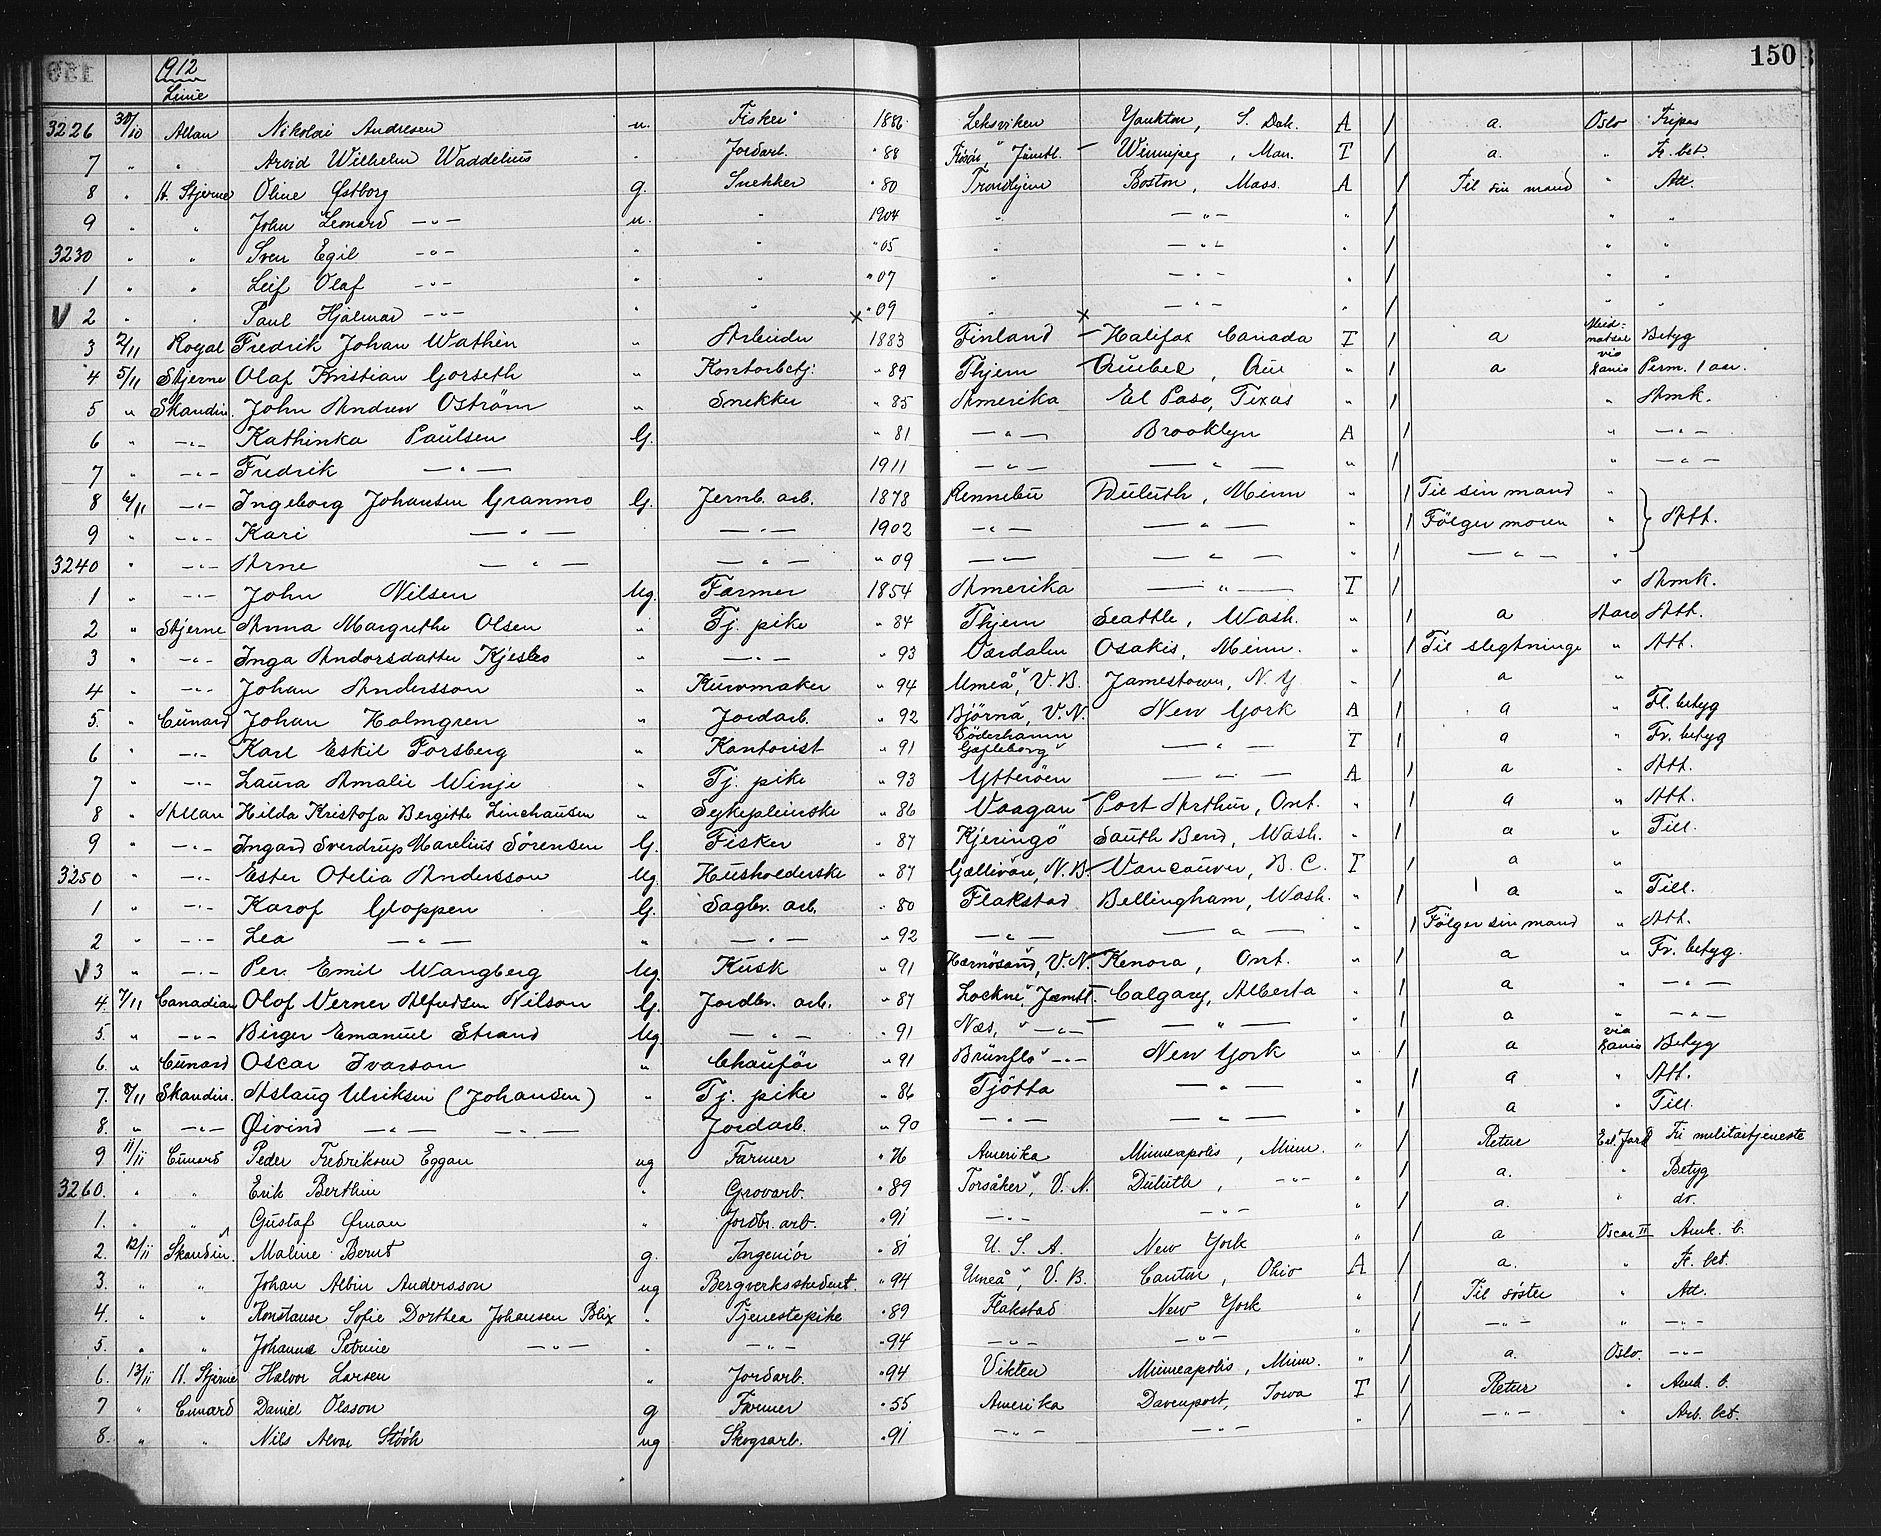 150
1912
Linie
3226 30/10 Allan Nikolai Andresen u. Fisker 1886 Leksviken Yankton, S. Dak. A / a. Oslo Fripas
7 " " Arvid Wilhelm Waddelius " Jordarb. " 88 Jämtl. Winnipeg, Man. T / a. " Fr. bet.
8 " H. Stjerne Oline Østborg g. Snekker " 80 Trondhjem Boston, Mass. A / Til sin mand " Att.
9 " " John Leonard —"— u. " 1904 " —"— " / " "
3230 " " Sven Egil —"— " " " 05 " —"— " / " "
1 " " Leif Olaf —"— " " " 07 " —"— " / " "
V 2 " " Paul Hjalmar —"— " " × " 09 " × —"— " / " "
3 2/11 Royal Fredrik Johan Wathén " Arbeider 1883 Finland Halifax Canada T / a Betyg
4 5/11 Stjerne Olaf Kristian Gorseth " Kontorbetj. " 89 Thjem Quebec, Que " / a via Perm. 1 aar.
5 " Skandin. John Andrew Oström " Snekker " 85 Amerika El Paso, Texas " / " Amk.
6 " —"— Kathinka Paulsen G. " 81 —"— Brooklyn A / " —"—
7 " —"— Fredrik —"— 1911 —"— —"— " / " —"—
8 6/11 —"— Ingeborg Johansen Granmo G. Jernb. arb. 1878 Rennebu Duluth, Minn " / Til sin mand "
9 " —"— Kari —"— —"— 1902 —"— —"— " / Fölger moren " } Att.
3240 " —"— Arne —"— —"— " 09 —"— —"— " / —"— "
1 " —"— John Nilsen Ug. Farmer 1854 Amerika —"— T / " Amk.
2 " Stjerne Anna Margrethe Olsen " Tj. pike " 84 Thjem Seattle, Wash. " / a Aaro Att.
3 " —"— Inga Andorsdatter Kjesbo " —"— " 93 Værdalen Osakis, Minn. " / Til slegtninge " Att.
4 " —"— Johan Andersson " Kurvmaker " 94 Umeå, V. B. Jamestown, N. Y " / a "
5. " Cunard Johan Holmgren " Jordarb. " 92 Björnå, V. N. New York A / a " Fl. betyg
6 " —"— Karl Eskil Forsberg " Kontorist " 91 Söderhamn Gefleborg —"— T / a " Fr. betyg
7 " —"— Laura Amalie Winje " Tj. pike " 93 Ytterøen —"— A / a " Att.
8 " Allan Hilda Kristofa Bergitte Linchausen " Sykepleierske " 86 Vaagan Port Arthur, Ont. " / a " Att.
9 " —"— Ingard Sverdrup Marelius Sörensen G. Fisker " 87 Kjeringö South Bend, Wash. " / a " Till.
3250 " —"— Ester Otelia Andersson Ug. Husholderske " 87 Gellivare, N. B. Vancouver, B. C. T / a "
1 " —"— Karof Gloppen G. Sagbr. arb. " 80 Flakstad Bellingham, Wash. " / a " Till.
2 " —"— Lea —"— " —"— " 92 —"— —"— " / Fölger sin mand " Att.
V 3 " —"— Per Emil Wangberg Ug. Kusk " 91 Hernösand, V. N. Kenora, Ont. " / a " Fr. betyg.
4. 7/11 Canadian Olof Verner Alfredsen Nilson G. Jordbr. arb. " 87 Lockne, Jæmtl. Calgary, Alberta " / a " —"—
5. " —"— Birger Emanuel Strand Ug —"— " 91 Næs, —"— —"— " / a " —"—
6. " Cunard Oscar Ivarson " Chauför " 91 Brunflo —"— New York " / a via Betyg
7. 8/11 Skandin. Aslaug Ulriksen (Johansen) " Tj. pike " 86 Tjötta —"— " / a " Att.
8. " —"— Øivind —"— —"— Jordarb. " 90 —"— —"— " / a " Till.
9 11/11 Cunard Peder Fredriksen Eggan ug Farmer " 76 Amerika Minneapolis, Minn. " / Retur Fri militærtjeneste
3260. " " Erik Berthin " Grovarb. " 89 Torsåker, V. N. Duluth, —"— " / a. " Betyg
1. " " Gustaf Öman " Jordbr. arb. " 91 —"— —"— " / a. " do.
2. 12/11 Skandin. Maline Berndt g. Ingeniör " 81 U. S. A. New York " / a Oscar II Amk. b.
3. " " Johan Albin Andersson ug Bergverksstudent. " 94 Umeå, V. B. Canton, Ohio A / a. " Fr. bet.
4. " " Konstanse Sofie Dorthea Johansen Blix " Tjenestepike " 89 Flakstad New York " / Til søster " Att.
5. " " Johanne Petrine —"— " —"— " 94 —"— —"— " / —"— " —"—
6. 13/11 H. Stjerne Halvor Larsen " Jordarb. " 94 Vikten Minneapolis, Minn. " / a. Oslo. —"—
7 " Cunard Daniel Olsson g Farmer " 55 Amerika Davenport, Iowa T / Retur " Amk. b.
8. " " Nils Alvar Stööh ug Skogsarb. " 91 —"— —"— " / —"— " Arb. bet.